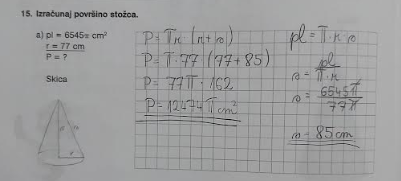 15. Izračunaj površino stožca.
a) pl = 6545π cm²
r = 77 cm
P = ?
Skica
P = πr (r + s)
P = π · 77 (77 + 85)
P = 77π · 162
P = 12474π cm²
pl = π · r · s
s = pl / π · r
s = 6545π / 77π
s = 85 cm